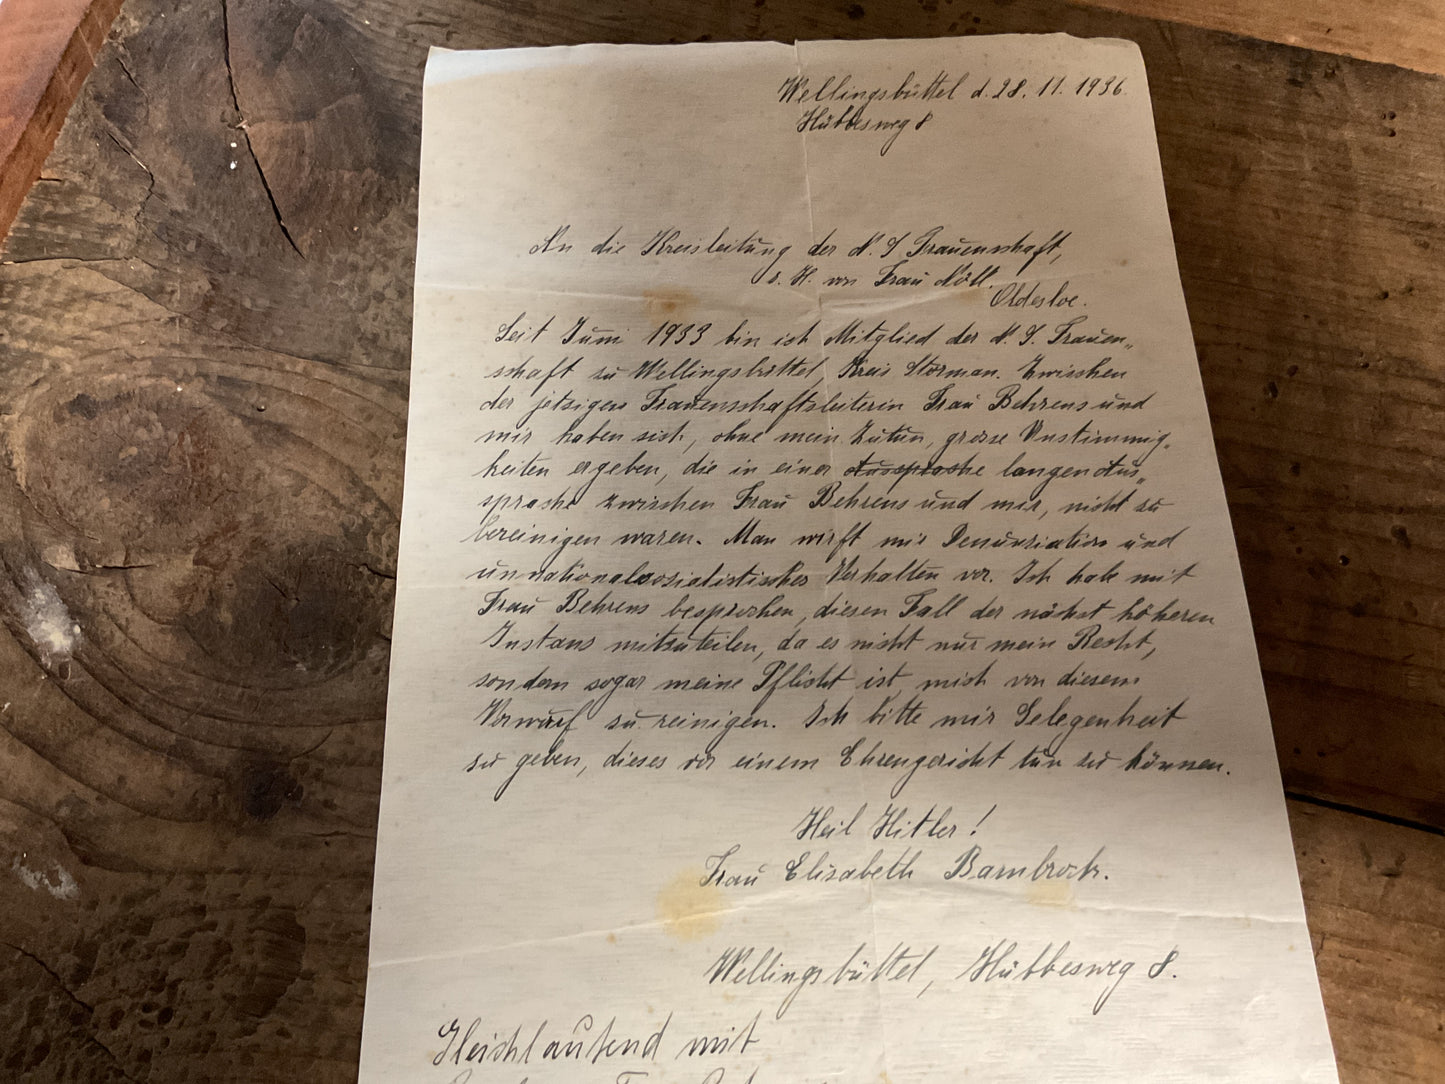 Wellingsbüttel d. 28. 11. 1936.
Hübbesweg 8
An die Kreisleitung der N. S Frauenschaft,
z. H. von Frau Nöll.
Oldesloe.
Seit Juni 1933 bin ich Mitglied der N. S. Frauen„
schaft zu Wellingsbüttel, Kreis Storman. Zwischen
der jetzigen Frauenschaftsleiterin Frau Behrens und
mir haben sich, ohne mein Zutun, grosse Unstimmig„
keiten ergeben, die in einer Aussprache langen Aus„
sprache zwischen Frau Behrens und mir, nicht zu
bereinigen waren. Man wirft mir Denunziation und
unnationalsozialistisches Verhalten vor. Ich habe mit
Frau Behrens besprochen, diesen Fall der nächst höheren
Instanz mitzuteilen, da es nicht nur mein Recht,
sondern sogar meine Pflicht ist, mich von diesem
Vorwurf zu reinigen. Ich bitte mir Gelegenheit
zu geben, dieses vor einem Ehrengericht tun zu können.
Heil Hitler!
Frau Elisabeth Barnbrock.
Wellingsbüttel, Hübbesweg 8.
Gleichlautend mit